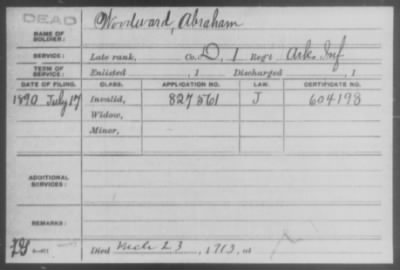 DEAD
NAME OF SOLDIER: Woodward, Abraham
SERVICE: Late rank, Co. D, 1 Reg't Ark. Inf
TERM OF SERVICE: Enlisted , 1 Discharged , 1
DATE OF FILING. CLASS. APPLICATION NO. LAW. CERTIFICATE NO.
1890 July 17 Invalid, 827561 J 604198
Widow,
Minor,
ADDITIONAL SERVICES:
REMARKS:
Died Mch 23, 1913, at